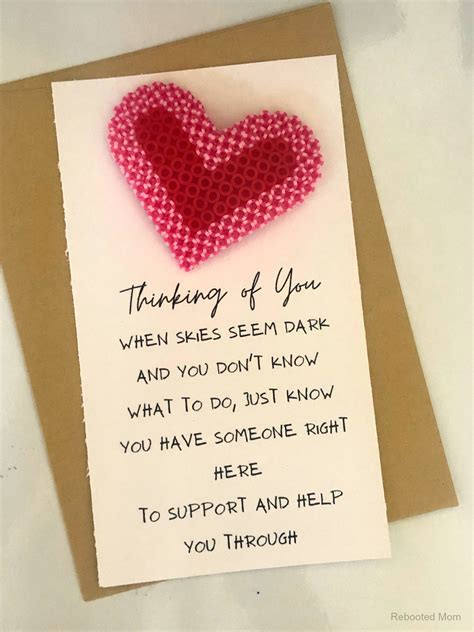 Thinking of You
WHEN SKIES SEEM DARK
AND YOU DON'T KNOW
WHAT TO DO, JUST KNOW
YOU HAVE SOMEONE RIGHT
HERE
TO SUPPORT AND HELP
YOU THROUGH
Rebooted Mom